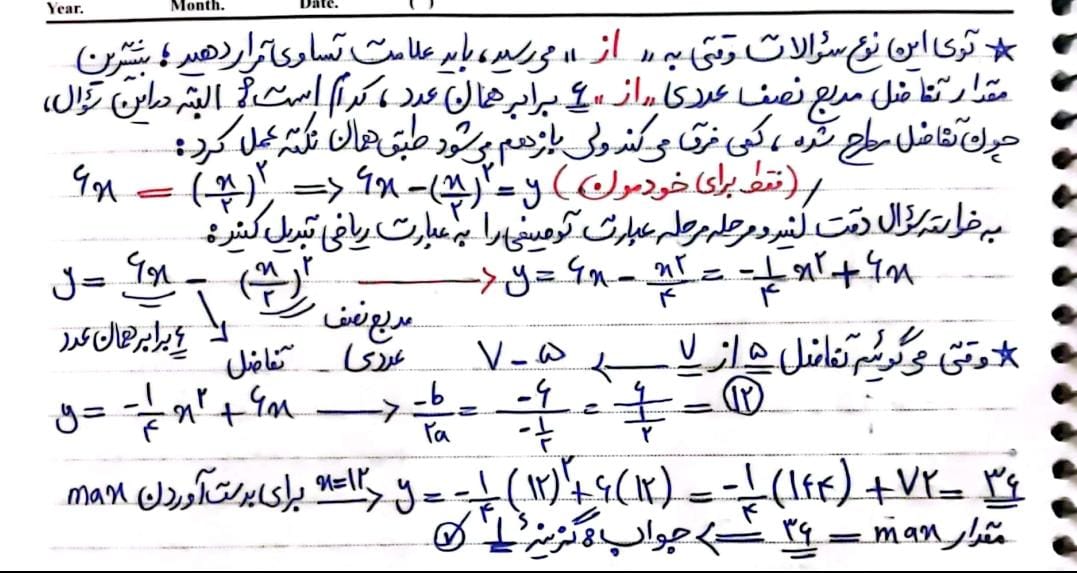 Year. Month. Date. ( )
★ توی این نوع سؤالات وقتی به " از " می‌رسید، باید علامت تساوی قرار دهید؛ بیشترین
مقدار تفاضل مربع نصف عددی "از" ۶ برابر همان عدد، کدام است؟ البته در این سؤال،
چون تفاضل مطرح شده، کمی فرق می‌کند ولی باز هم می‌شود طبق همان نکته عمل کرد:
۶x = (x/۲)^۲ => ۶x - (x/۲)^۲ = y (فقط برای خودمون)
به خواسته سؤال دقت کنید و مرحله مرحله عبارت توصیفی را به عبارت ریاضی تبدیل کنید:
y = ۶x - (x/۲)^۲ → y = ۶x - x^۲/۴ = -۱/۴ x^۲ + ۶x
۶ برابر همان عدد تفاضل مربع نصف عددی
★ وقتی می‌گوئیم تفاضل ۵ از ۷ ← ۷ - ۵
y = -۱/۴ x^۲ + ۶x → -b/۲a = -۶/(-۱/۲) = ۶/(۱/۲) = ۱۲
برای بدست آوردن max x=۱۲ → y = -۱/۴ (۱۲)^۲ + ۶(۱۲) = -۱/۴ (۱۴۴) + ۷۲ = ۳۶
مقدار max = ۳۶ => جواب: گزینه ۱ ✓